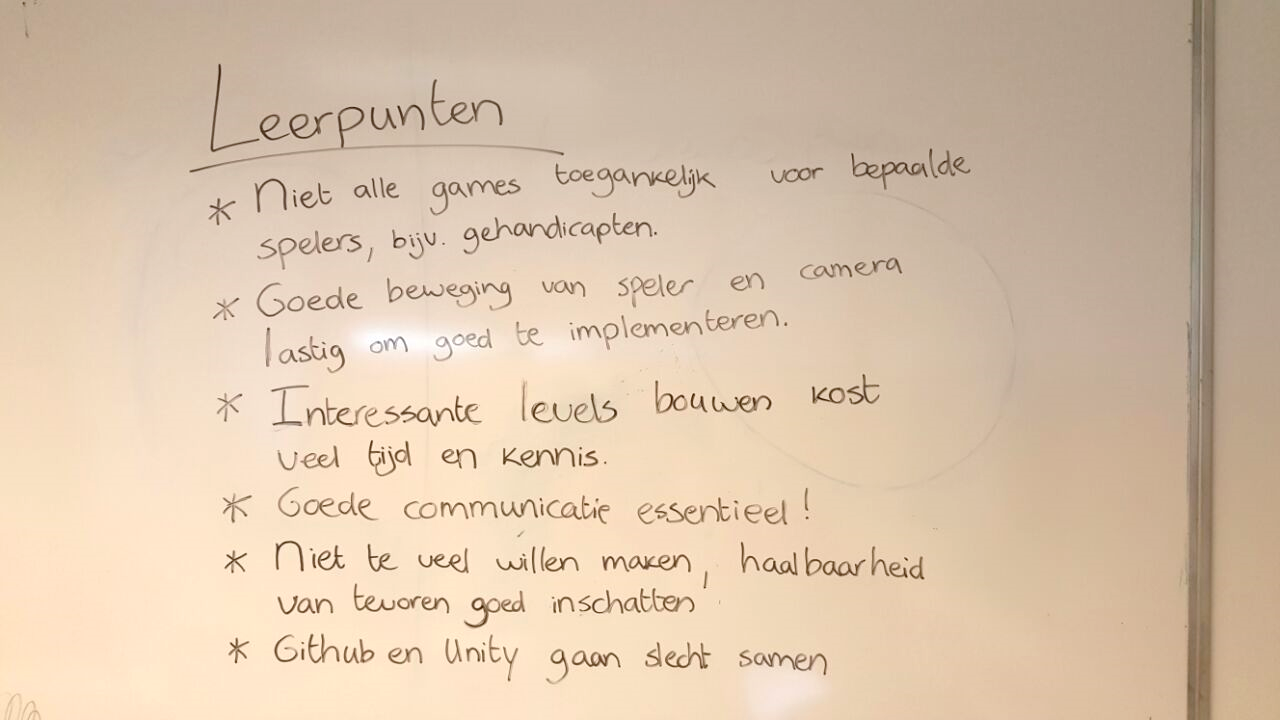 Leerpunten
* Niet alle games toegankelijk voor bepaalde
spelers, bijv. gehandicapten.
* Goede beweging van speler en camera
lastig om goed te implementeren.
* Interessante levels bouwen kost
veel tijd en kennis.
* Goede communicatie essentieel!
* Niet te veel willen maken, haalbaarheid
van tevoren goed inschatten
* Github en Unity gaan slecht samen